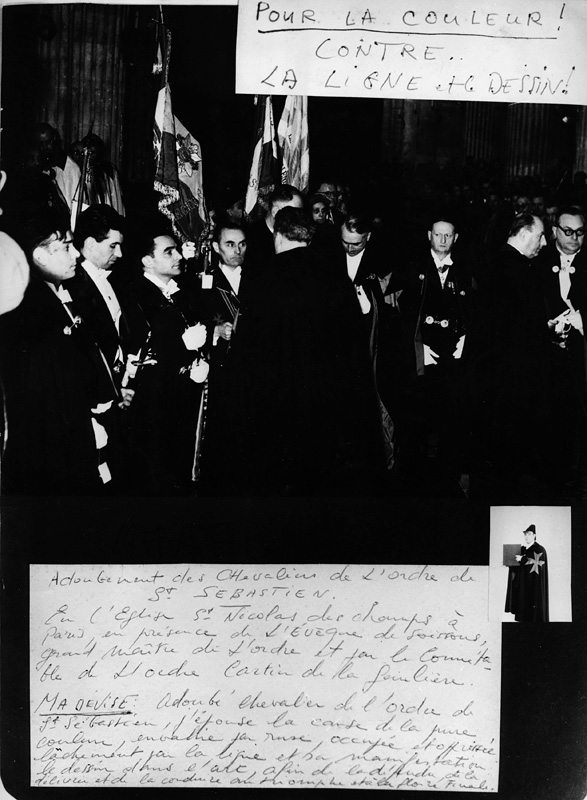 POUR LA COULEUR!
CONTRE..
LA LIGNE et le DESSIN!
Adoubement des Chevaliers de L'ordre de
St SEBASTIEN.
En L'Eglise St Nicolas des champs à
Paris, en présence de L'Évêque de Soissons,
grand maître de L'ordre et par le Connéta-
ble de L'ordre Cartin de la
MA DEVISE: Adoubé chevalier de l'ordre de
St Sébastien, j'épouse la cause de la pure
couleur, envahie par ruse, occupée et opprimée
lâchement par la ligne et sa manifestation
le dessin dans l'art, afin de la défendre, de la
délivrer et de la conduire au triomphe et à la gloire finale.